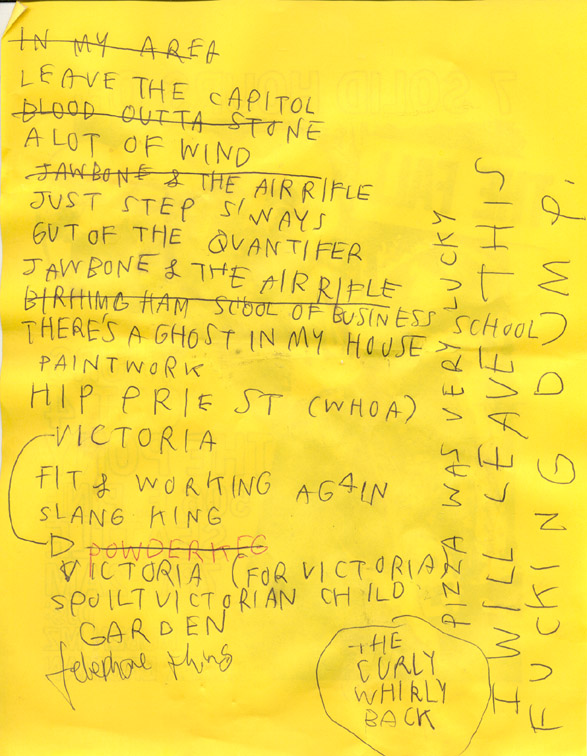 IN MY AREA
LEAVE THE CAPITOL
BLOOD OUTTA STONE
A LOT OF WIND
JAWBONE & THE AIR RIFLE
JUST STEP S'WAYS
GUT OF THE QUANTIFER
JAWBONE & THE AIR RIFLE
BIRHMING HAM SCOOL OF BUSINESS SCHOOL
THERE'S A GHOST IN MY HOUSE
PAINTWORK
HIP PRIEST (WHOA)
VICTORIA
FIT & WORKING AGAIN
SLANG KING
POWDERKEG
VICTORIA (FOR VICTORIA)
SPOILT VICTORIAN CHILD
GARDEN
telephone thing
THE
CURLY
WHIRLY
BACK
PIZZA WAS VERY LUCKY
I WILL LEAVE THIS
FUCKING DUMP.